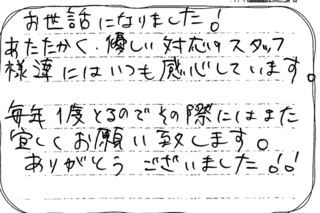 お世話になりました!
あたたかく、優しい対応のスタッフ
様達にはいつも感心しています。
毎年1度とるのでその際にはまた
宜しくお願い致します。
ありがとうございました!!